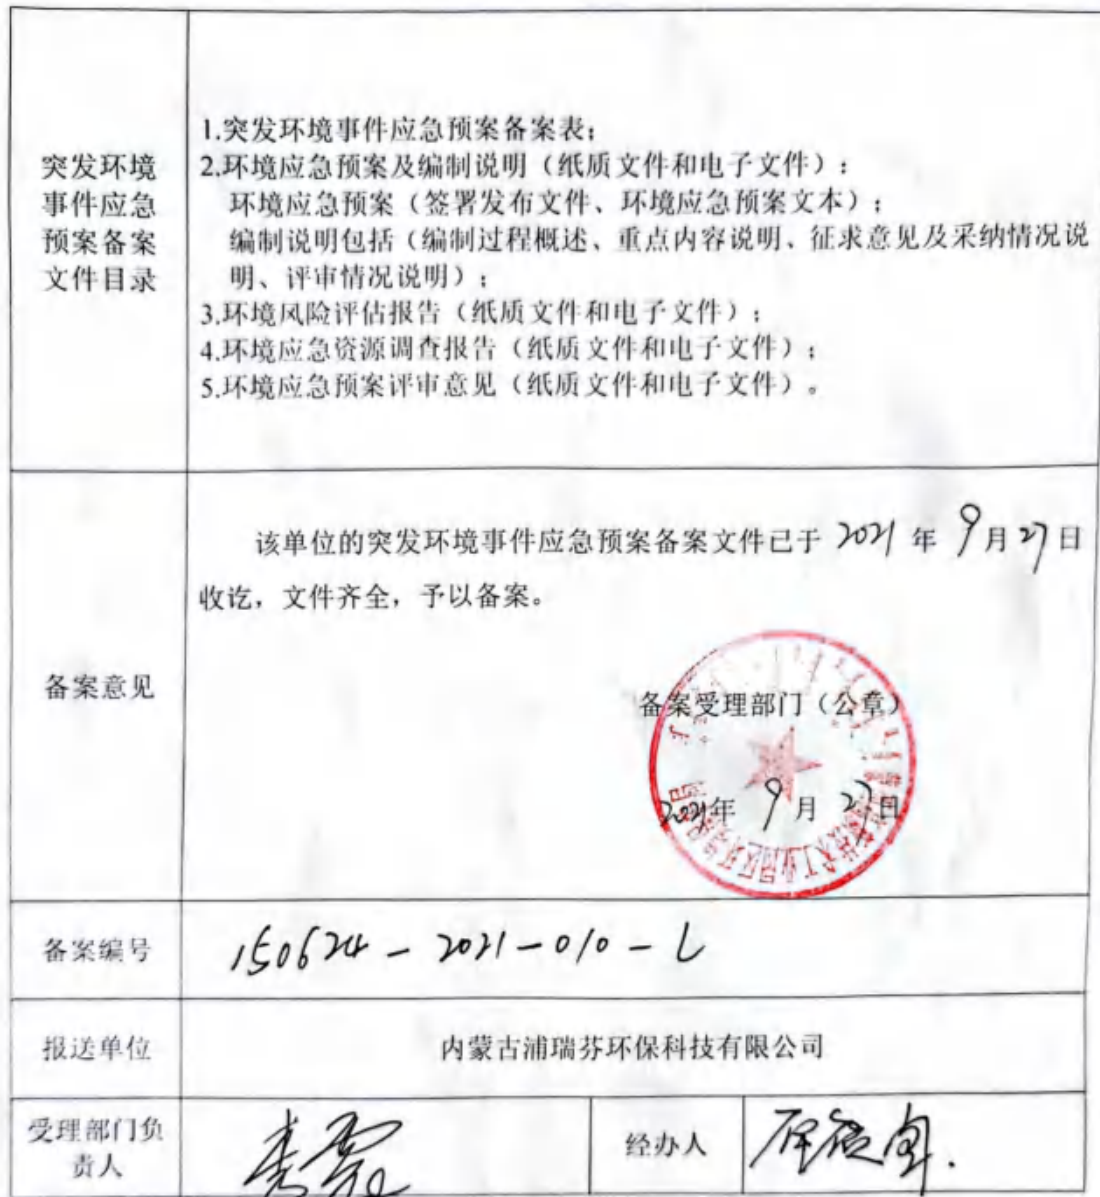 突发环境
事件应急
预案备案
文件目录
1.突发环境事件应急预案备案表；
2.环境应急预案及编制说明（纸质文件和电子文件）：
环境应急预案（签署发布文件、环境应急预案文本）；
编制说明包括（编制过程概述、重点内容说明、征求意见及采纳情况说
明、评审情况说明）；
3.环境风险评估报告（纸质文件和电子文件）；
4.环境应急资源调查报告（纸质文件和电子文件）；
5.环境应急预案评审意见（纸质文件和电子文件）。
备案意见
该单位的突发环境事件应急预案备案文件已于 2021 年 9月27日
收讫，文件齐全，予以备案。
备案受理部门（公章）
2021年 9月 27日
备案编号
150624-2021-010-L
报送单位
内蒙古浦瑞芬环保科技有限公司
受理部门负
责人
经办人